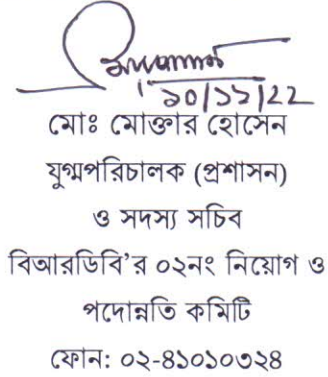 ১০/১১/২২
মোঃ মোক্তার হোসেন
যুগ্মপরিচালক (প্রশাসন)
ও সদস্য সচিব
বিআরডিবি'র ০২নং নিয়োগ ও
পদোন্নতি কমিটি
ফোন: ০২-৪১০১০৩২৪